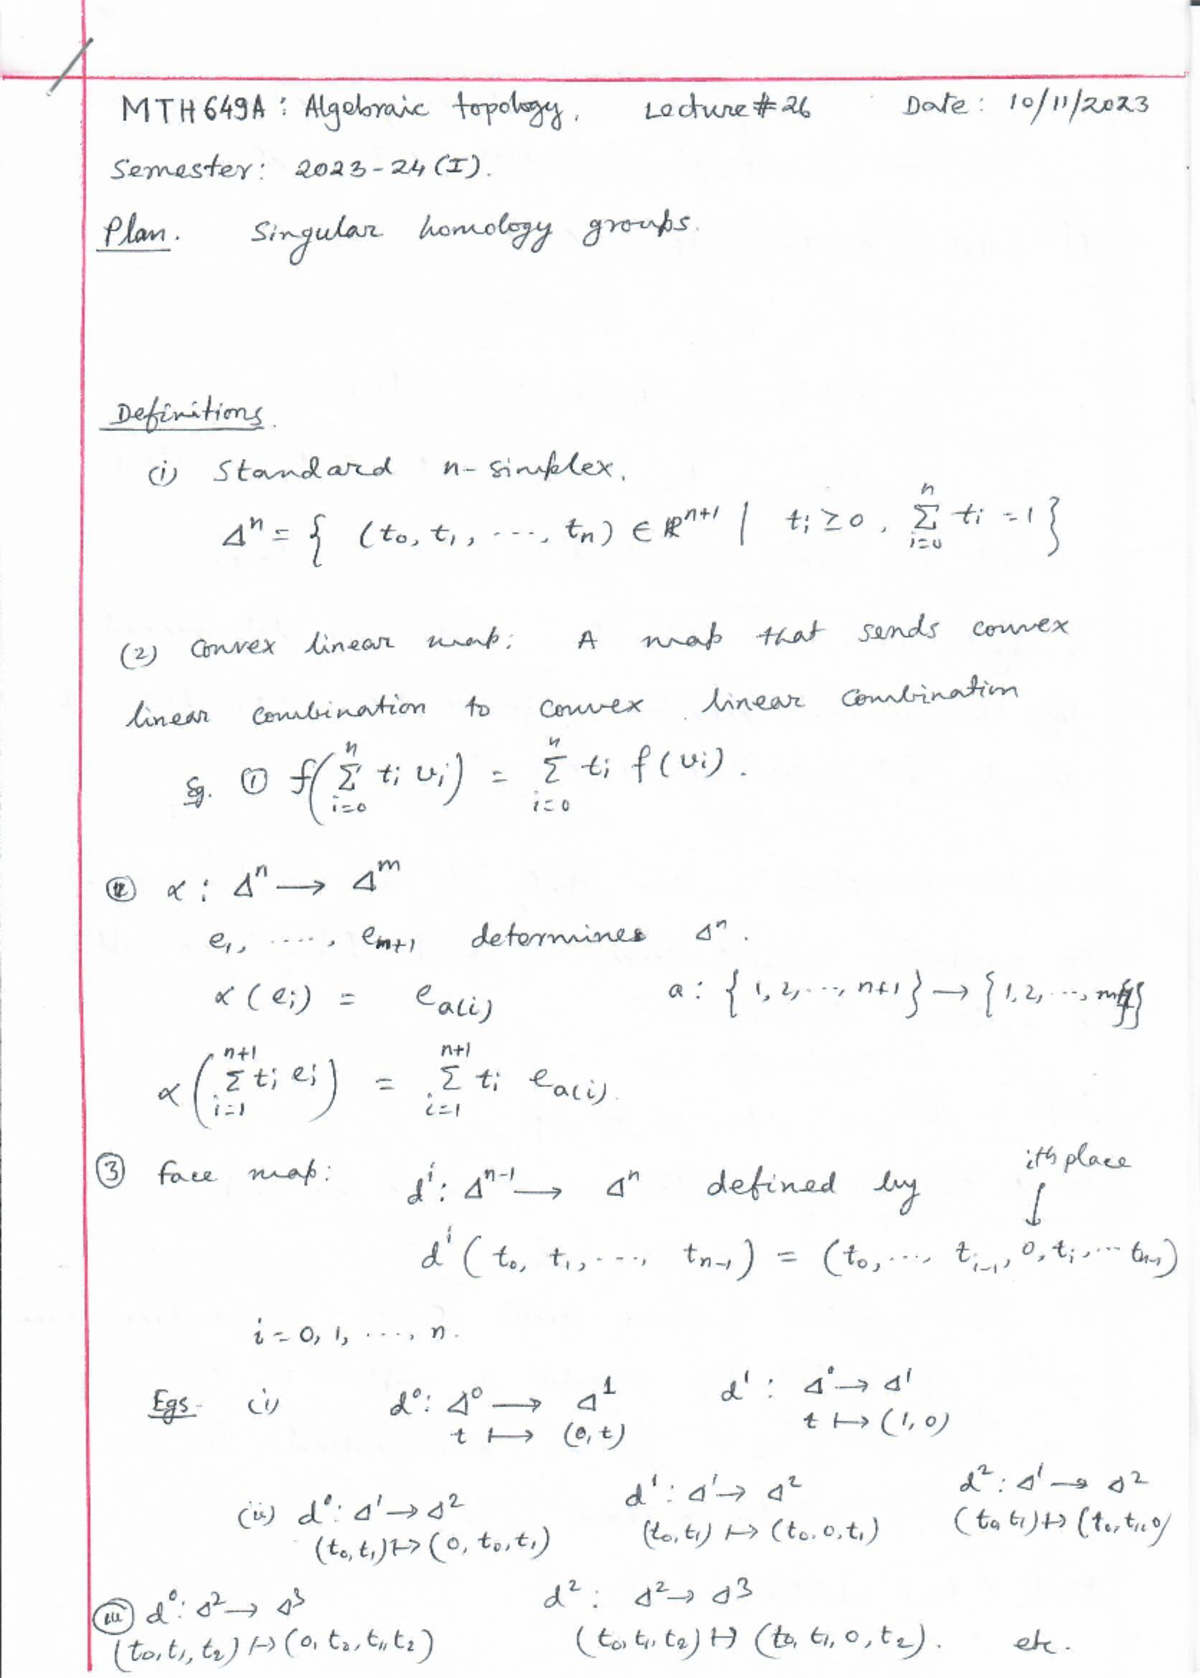 MTH649A: Algebraic topology. Lecture #26 Date: 10/11/2023
Semester: 2023-24(I).
Plan. Singular homology groups.
Definitions.
(i) Standard n-simplex.
Δ^n = { (t_0, t_1, ..., t_n) ∈ ℝ^{n+1} | t_i ≥ 0, Σ_{i=0}^{n} t_i = 1 }
(2) Convex linear map: A map that sends convex
linear combination to convex linear combination
Eg. ① f(Σ_{i=0}^{n} t_i v_i) = Σ_{i=0}^{n} t_i f(v_i).
② α: Δ^n → Δ^m
e_1, ...., e_{n+1} determines Δ^n.
α(e_i) = e_{a(i)} a: {1, 2, ..., n+1} → {1, 2, ..., m+1}
α(Σ_{i=1}^{n+1} t_i e_i) = Σ_{i=1}^{n+1} t_i e_{a(i)}.
③ Face map: d^i: Δ^{n-1} → Δ^n defined by ith place
↓
d^i(t_0, t_1, ..., t_{n-1}) = (t_0, ..., t_{i-1}, 0, t_i, ... t_{n-1})
i = 0, 1, ..., n.
Egs- (i) d^0: Δ^0 → Δ^1 d^1: Δ^0 → Δ^1
t ↦ (0, t) t ↦ (1, 0)
(ii) d^0: Δ^1 → Δ^2 d^1: Δ^1 → Δ^2 d^2: Δ^1 → Δ^2
(t_0, t_1) ↦ (0, t_0, t_1) (t_0, t_1) ↦ (t_0, 0, t_1) (t_0, t_1) ↦ (t_0, t_1, 0)
(iii) d^0: Δ^2 → Δ^3 d^2: Δ^2 → Δ^3
(t_0, t_1, t_2) ↦ (0, t_0, t_1, t_2) (t_0, t_1, t_2) ↦ (t_0, t_1, 0, t_2). etc.